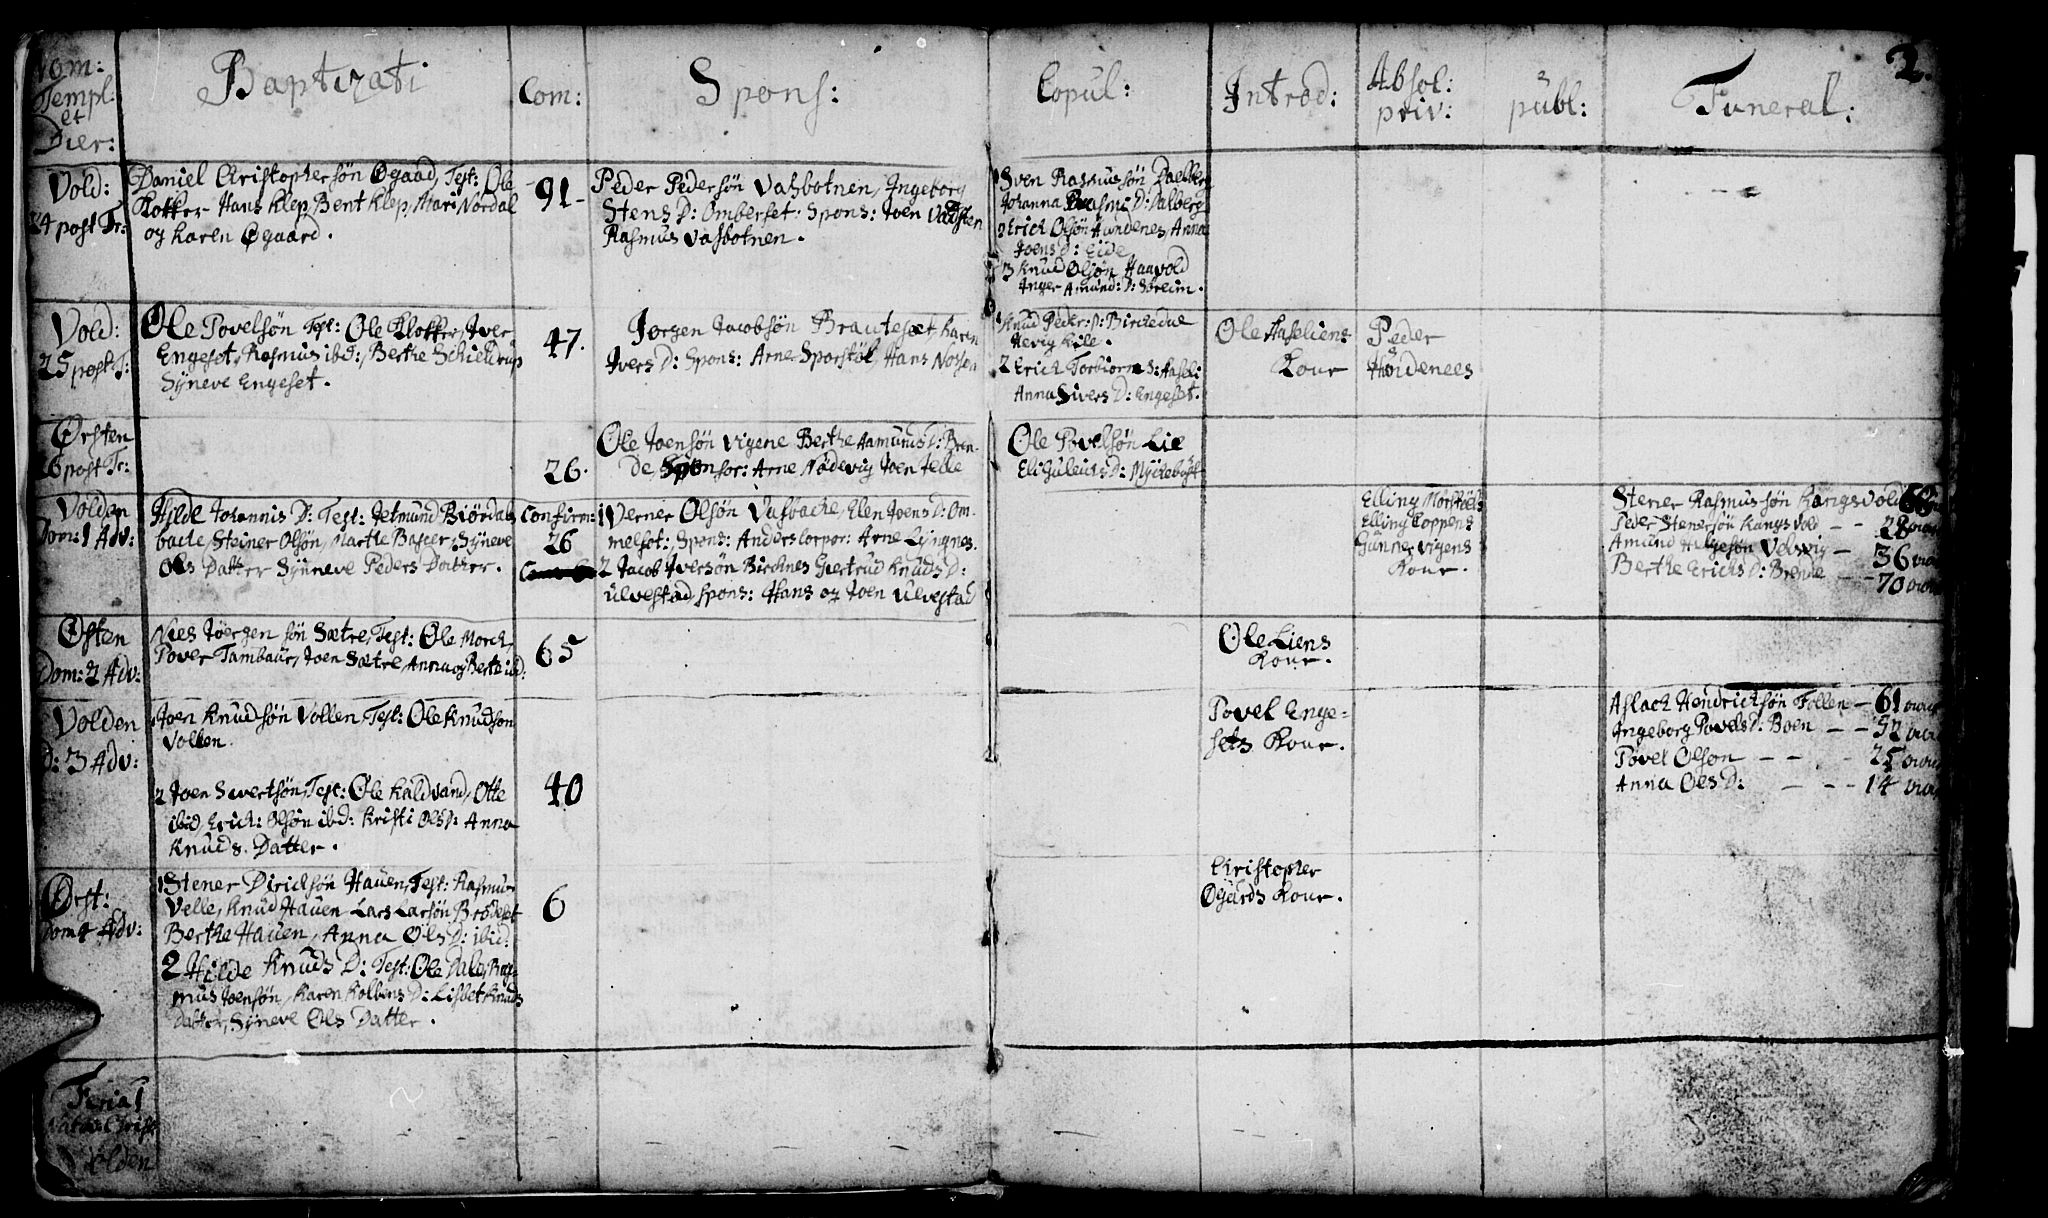 2.
Nom:
Templ:
et
Dier:
Baptizati
Com:
Spons:
Copul:
Introd:
Absol:
priv:
publ:
Funeral:
Vold:
24 post Tr:
Daniel Christophersøn Øgaard, Test: Ole
Klokker Hans Klep, Bent Klep, Mari Nordal
og Karen Øgaard.
91-
Peder Pedersøn Vasbotnen, Ingeborg
Stens D: Omberset. Spons: Joen Vadsten
Rasmus Vasbotnen.
1 Sven Rasmussøn Dalberg
Johanna Rasmi D: Dalberg
2 Erich Olsøn Hundenes, Anna
Joens D: Eide
3 Knud Olsøn Haavold
Inger Amund: D:
Vold:
25 post T:
Ole Povelsøn Test: Ole Klokker, Iver
Engeset, Rasmus ibd:, Berthe Schieldrup
Syneve Engeset.
47.
Jørgen Jacobsøn Brauteset, Karen
Ivers D: Spons: Arne Sporstøl, Hans
1 Knud Peder: S: Birchedal
Kile.
2 Erich Torbiorns: Aaseli
Anna Sivers D: Engeset.
Ole Aaseliens
Kone
Peder
Hundenees
Ørsten
26 post Tr:
26.
Ole Joensøn Vigene Berthe Aamunds D: Bren-
de Sponsor: Arne Nødevig Joen
Ole Povelsøn Lie
Eli Guleichs D: Mycklebust
Volden
Dom: 1 Adv:
Hilde Johannis D: Test: Jetmund Biørdals
bache, Steiner Olsøn, Marthe, Syneve
Ols Datter Syneve Peders Datter.
Confirm:
26
1 Verner Olsøn Vasbache, Elen Joens D: Om-
melset: Spons: Anders Corpor: Arne Lyngnes.
2 Jacob Iversøn Birchnes Giertrud Knuds D:
Ulvestad spons: Hans og Joen Ulvestad
Elling Morskiels
Elling Coppens
Gunner Vigens
Kone.
Stener Rasmussøn Rangsvold
Peder Stenersøn Rangsvold - - 28
Amund Helgesøn Velsvig - 36
Berthe Erichs D: Brende - - 70
Østen
Dom: 2 Adv:
Nies Jørgensøn Sætre, Test: Ole Morch,
Povel Tambaur, Joen Sætre, Anna og Berte ibd:
65
Ole Liens
Kone.
Volden
D: 3 Adv:
1 Joen Knudsøn Vollen Test: Ole Knudsøn
Vollen.
2 Joen Sivertsøn, Test: Ole Kaldvand, Otte
ibid Erich: Olsøn ibd: Kristi Ols D: Anna
Knuds. Datter.
40
Povel Enge-
sets Kone.
Aslach Hendrichsøn Follen - 61
Ingeborg Povels D: Boen - - 52
Povel Olsøn - - - 25
Anna Ols D: - - - 14
Ørst:
Dom 4 Adv:
1 Stener Dirichsøn Hauen, Test: Rasmus
Velle, Knud Hauen Lars Larsøn Brødeset
Berthe Hauen, Anna Ols D: ibid:
2 Hilde Knuds D: Test: Ole Dale, Ras-
mus Joensøn, Karen Kolbens D: Lisbet Knuds
Datter, Syneve Ols Datter.
6
Christopher
Øgards Kone.
Feria 1
Nativ: Christ
Volden